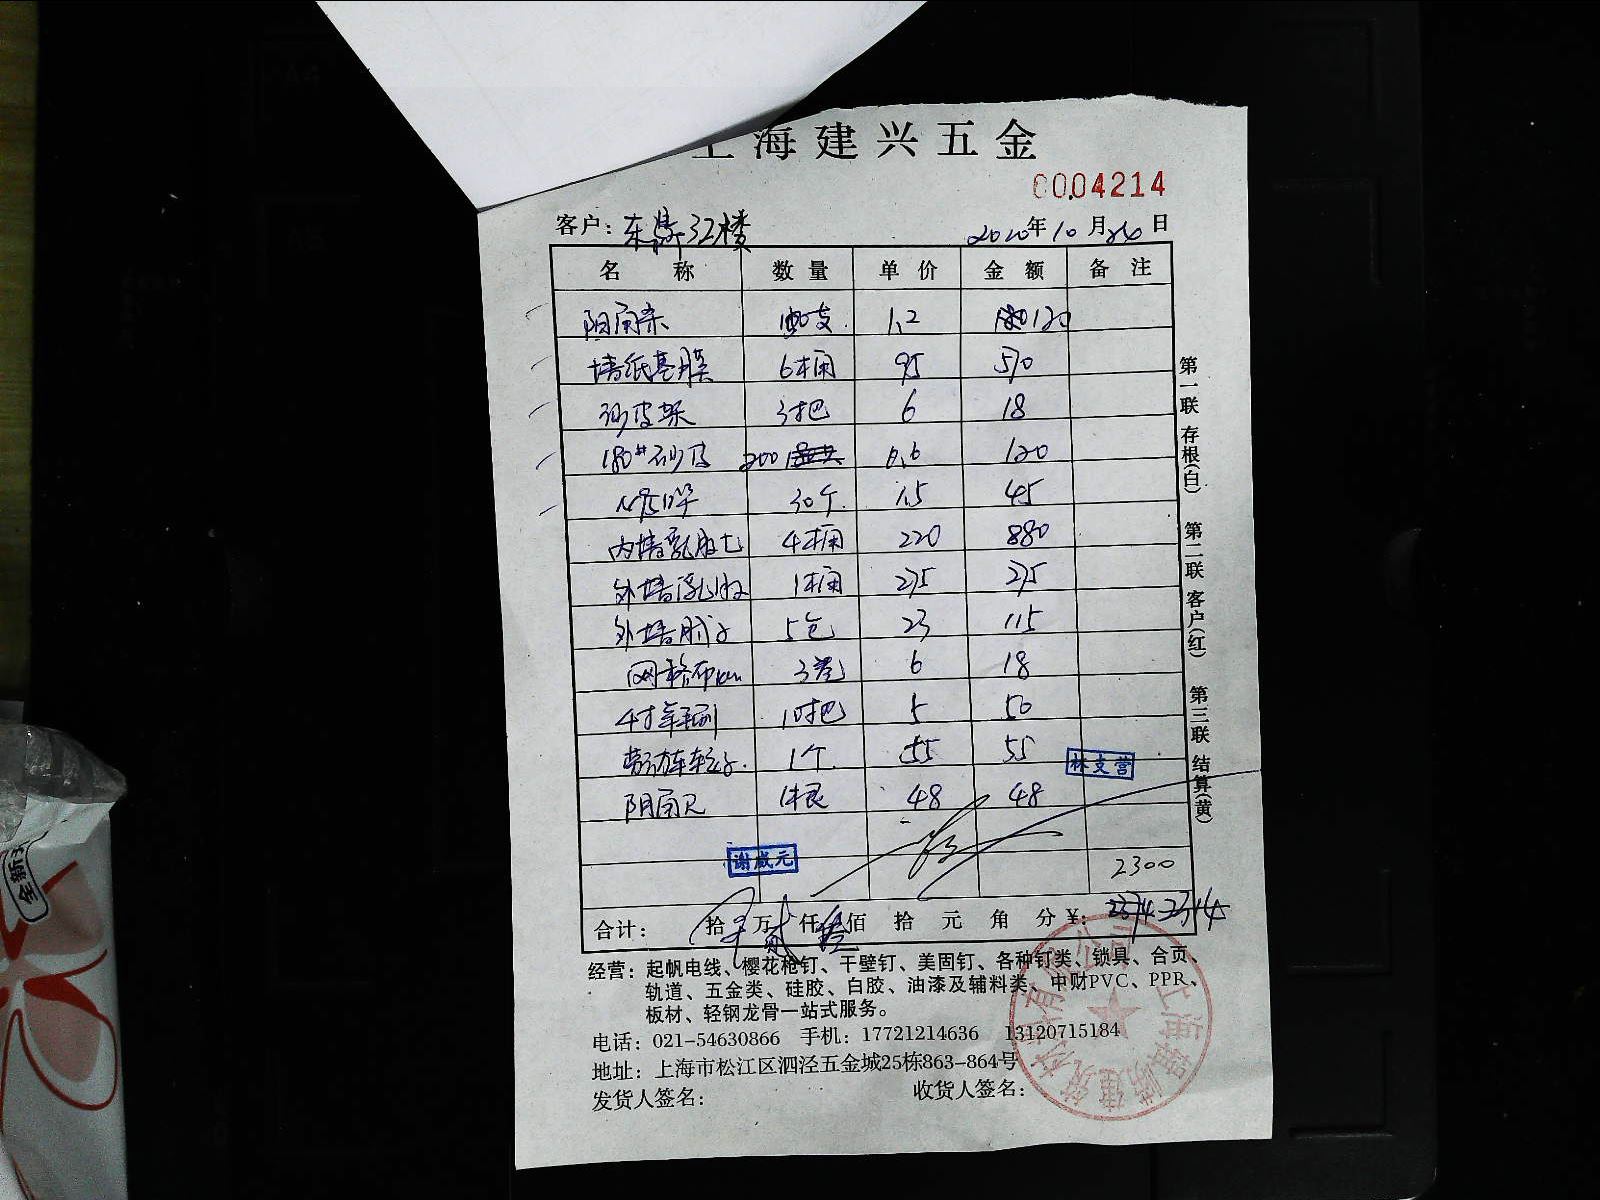 上海建兴五金
0004214
客户: 东 32楼 2020年10月26日
名称 数量 单价 金额 备注
阴角条 100支 1.2 120
墙纸基膜 6桶 95 570
砂皮架 3把 6 18
180#砂皮 200 0.6 120
30个 1.5 45
内墙乳胶七 4桶 220 880
外墙乳胶 1桶 275 275
外墙腻子 5包 23 115
网格布 3卷 6 18
4寸羊毛刷 10把 5 50
劳动车轮子 1个 55 55
林支营
阴角尺 1根 48 48
谢威元
2300
合计: 拾 万 仟 佰 拾 元 角 分 ¥: 2314
经营: 起帆电线、樱花枪钉、干壁钉、美固钉、各种钉类、锁具、合页、
轨道、五金类、硅胶、白胶、油漆及辅料类、中财PVC、PPR、
板材、轻钢龙骨一站式服务。
电话: 021-54630866 手机: 17721214636 13120715184
地址: 上海市松江区泗泾五金城25栋863-864号
发货人签名: 收货人签名:
第一联 存根(白) 第二联 客户(红) 第三联 结算(黄)